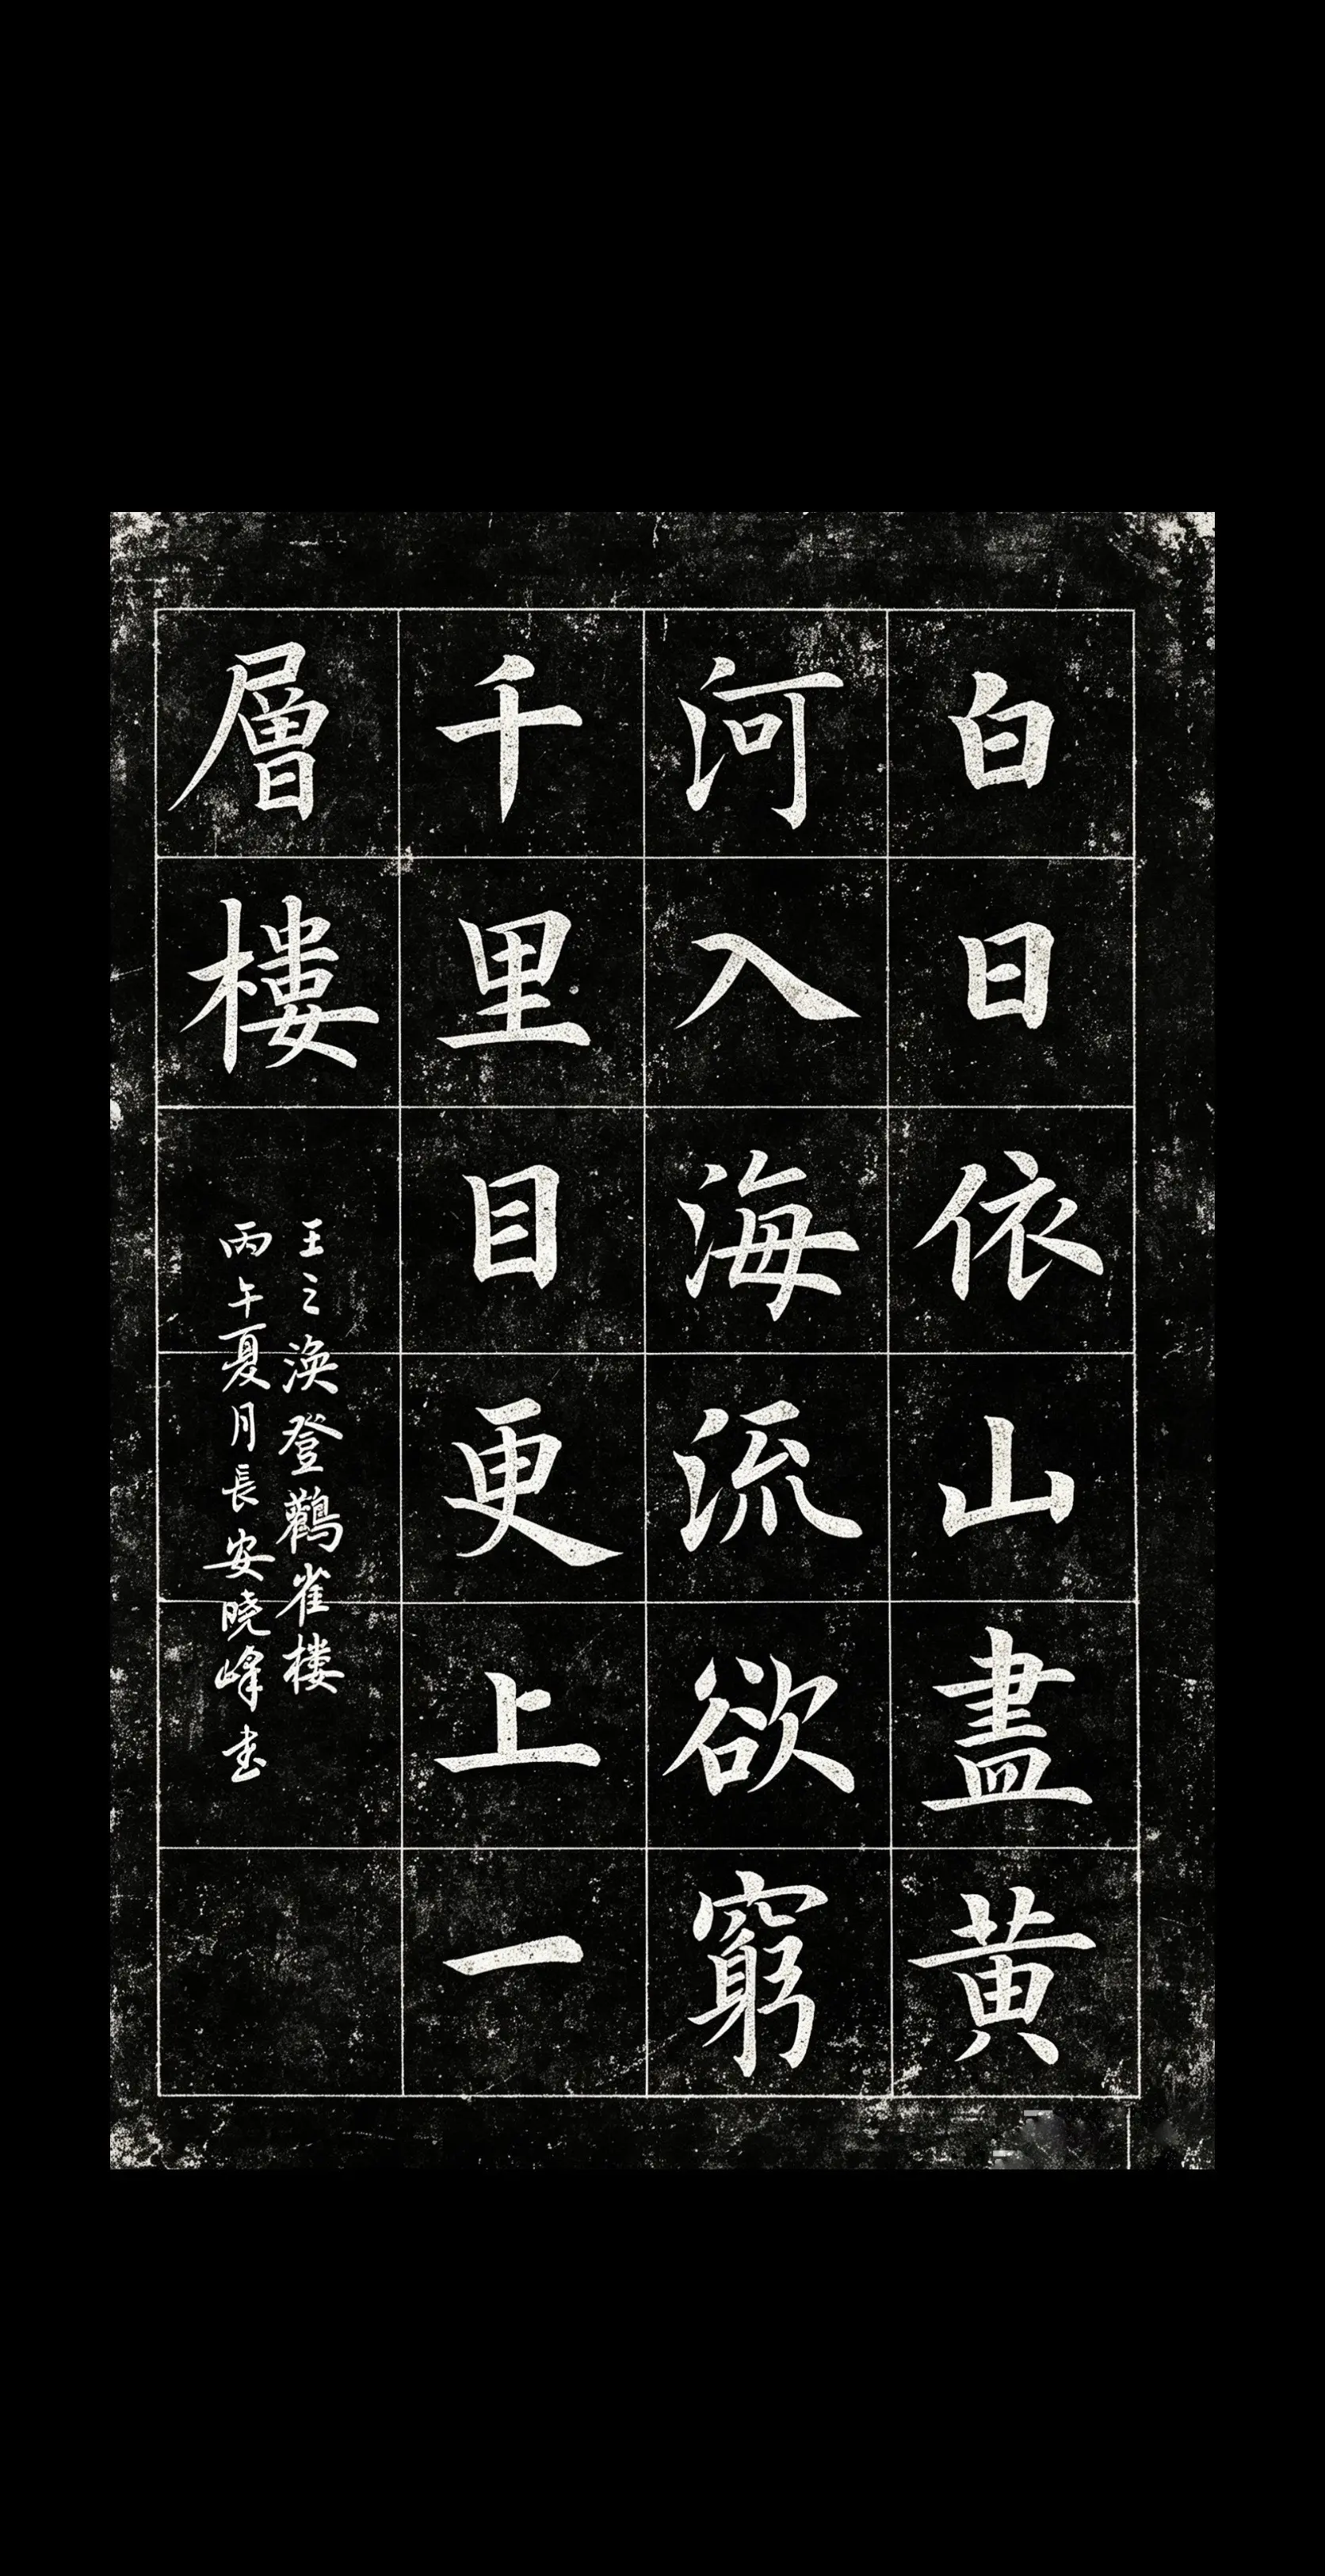 白日依山盡黄
河入海流欲窮
千里目更上一
層樓
王之渙登鸛雀楼
丙午夏月長安曉峰书